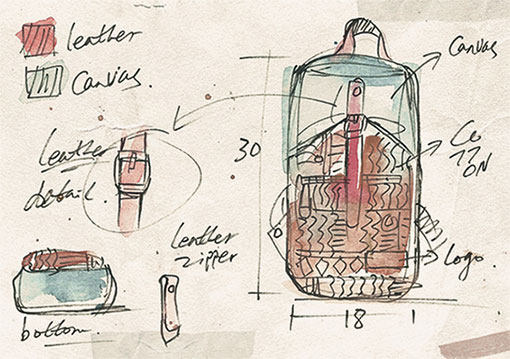 leather
Canvas
leather
detail
bottom
leather
zipper
30
18
Canvas
Co
TT
ON
Logo